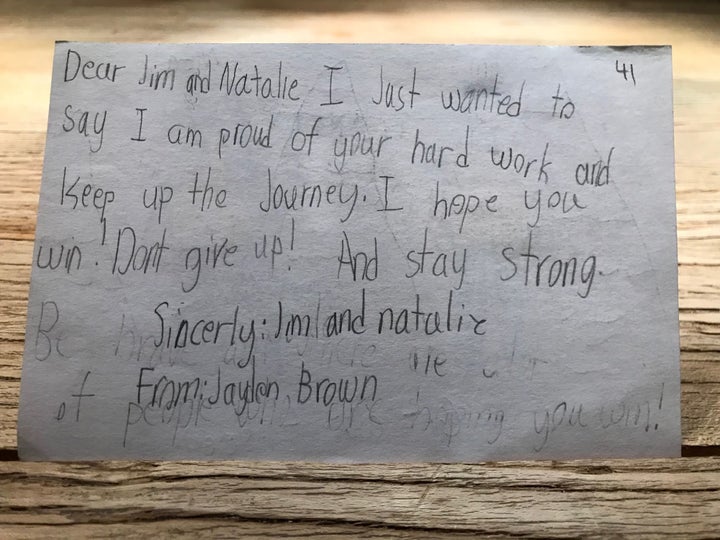 41
Dear Jim and Natalie I Just wanted to
say I am proud of your hard work and
Keep up the Journey. I hope you
win! Dont give up! And stay strong.
Sincerly: Jim and natalie
Be
From: Jayden Brown
of people who are hoping you win!